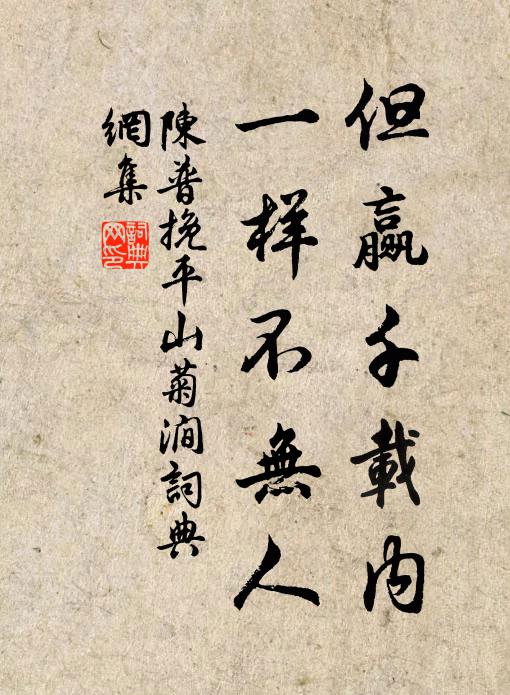 但贏千載内
一样不無人
陳普挽平山菊澗詞典
網集
詞典
网印